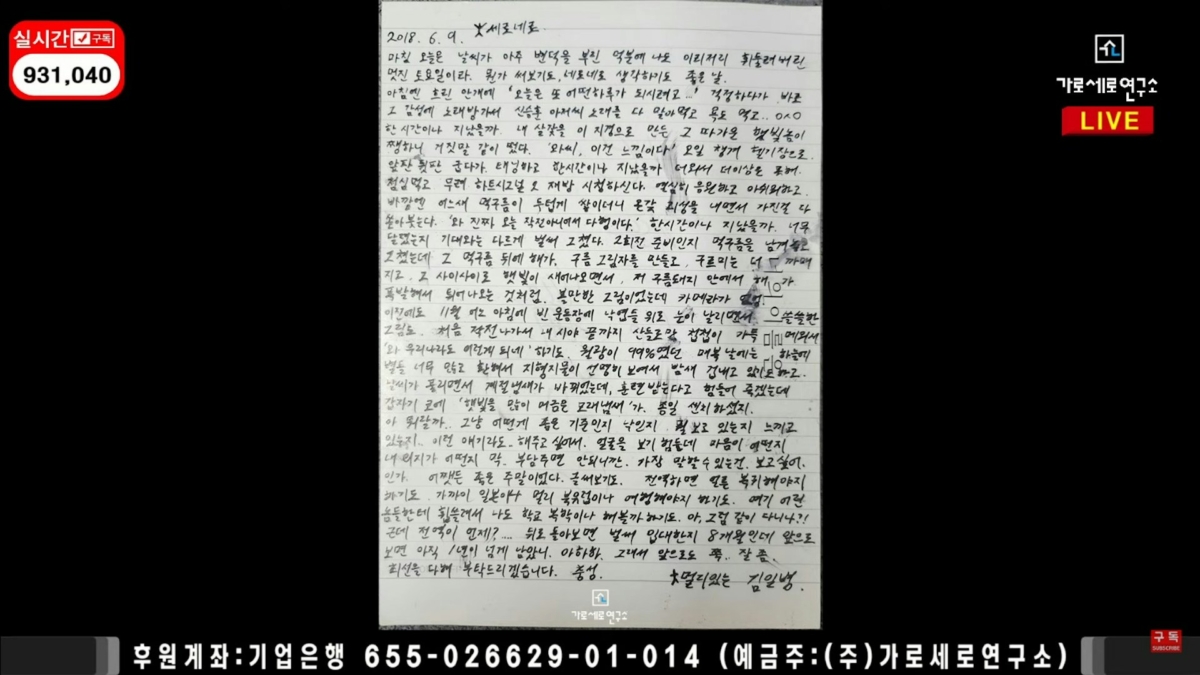 실시간 구독
931,040
가로세로연구소
LIVE
2018. 6. 9. 세로네로
마침 오늘은 날씨가 아주 변덕을 부린 덕분에 나도 이리저리 휘둘려버린
멋진 토요일이라. 뭔가 써보기도, 네로네로 생각하기도 좋은 날.
아침엔 흐린 안개에 '오늘은 또 어떤하루가 되시려고...' 걱정하다가 바로
그 감성에 노래방가서 신승훈 아저씨 노래를 다 말아먹고 욕도 먹고.. ㅇㅅㅇ
한시간이나 지났을까 내 살갗을 이 지경으로 만든 그 따가운 햇빛놈이
쨍하니 거짓말 같이 떴다. '와씨, 이건 느낌이다' 오일 챙겨 헬기장으로.
앞판 뒷판 굽다가. 태닝하고 한시간이나 지났을까 더워서 더이상은 못해.
점심먹고 무려 하트시그널2 재방 시청하신다. 열심히 응원하고 아쉬워하고.
바깥엔 어느새 먹구름이 두텁게 쌓이더니 온갖 괴성을 내면서 가진걸 다
쏟아붓는다. '와 진짜 오늘 작전아니여서 다행이다.' 한시간이나 지났을까. 너무
달렸는지 기대와는 다르게 벌써 그쳤다. 2회전 준비인지 먹구름을 남겨놓고
그쳤는데 그 먹구름 뒤에 해가. 구름 그림자를 만들고, 구르미는 더 까매
지고. 그 사이사이로 햇빛이 새어나오면서, 저 구름돼지 안에서 해가
폭발해서 튀어나오는 것처럼. 볼만한 그림이었는데 카메라가
이전에도 11월 어느 아침에 빈 운동장에 낙엽들 위로 눈이 날리면서 쓸쓸한
그림도. 처음 작전나가서 내 시야 끝까지 산등로만 첩첩이 가득 메워서
'와 우리나라도 이렇게 되네' 하기도. 월광이 99%였던 매복 날에는 하늘에
별들 너무 많고 환해서 지형지물이 선명히 보여서 밤새 겁내고 있기도하고.
날씨가 풀리면서 계절냄새가 바뀌었는데, 훈련받는다고 힘들어 죽겠는데
갑자기 코에 '햇빛을 많이 머금은 모래냄새'가. 종일 센치하셨지.
아 뭐랄까.. 그냥 어떻게 좋은 기준인지 낙인지 뭘 보고 있는지 느끼고
있는지.. 이런 얘기라도.. 해주고 싶어서. 얼굴을 보기 힘든데 마음이 어떤지
내 의지가 어떤지 막.. 부담주면 안되니깐. 가장 말할수 있는건. 보고싶어.
인가. 어쨋든 좋은 주말이었다. 글써보기도. 전역하면 얼른 복귀해야지
하기도. 가까이 일본이나 멀리 북유럽이나 여행해야지 하기도. 여기 어린
놈들한테 휩쓸려서 나도 학교 복학이나 해볼까하기도. 아, 그럼 같이 다니나?!
근데 전역이 언제?.... 뒤로 돌아보면 벌써 입대한지 8개월인데 앞으로
보면 아직 1년이 넘게 남았니. 아하하. 그래서 앞으로도 쭉.. 잘 좀.
최선을 다해 부탁드리겠습니다. 충성.
멀리있는 김일병.
가로세로연구소
후원계좌:기업은행 655-026629-01-014 (예금주:(주)가로세로연구소)
구독
SUBSCRIBE